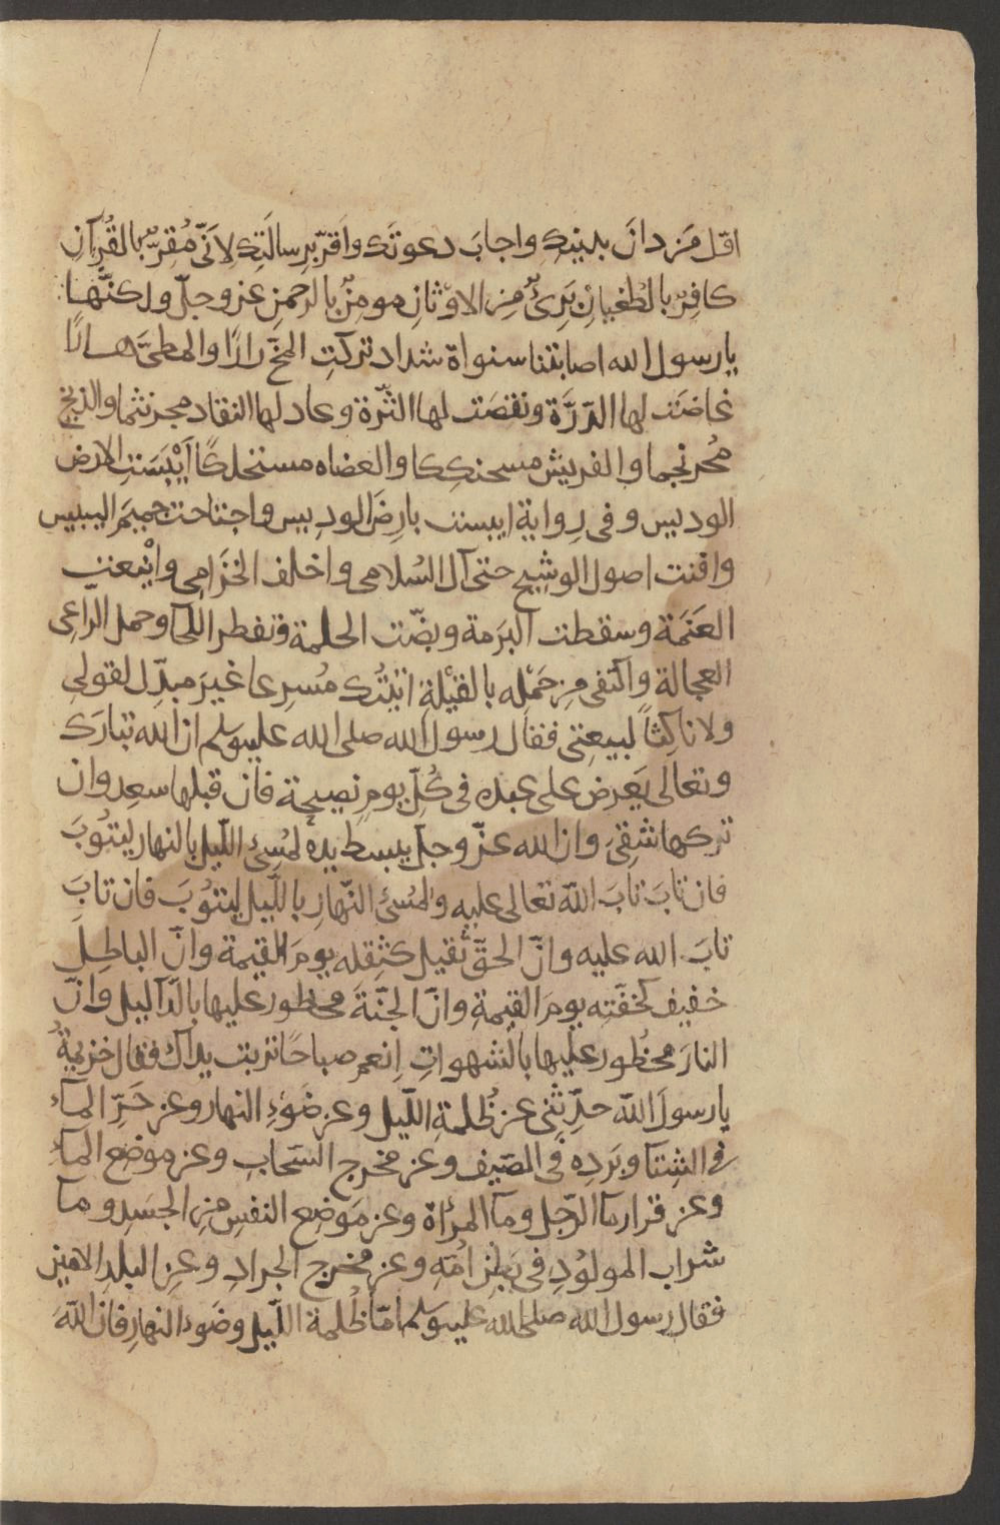 اقل مَن دانَ بدينِك واجابَ دعوتَك واَقرّ برسالَتِك لاَنّى مُقِرٌّ بالقُرآنِ
كافِرٌ بالطُغيانِ بَرِىٌٔ مِن الاوْثانِ مومنٌ بالرحمنِ عز وجلّ ولكنَّها
يا رسول الله اصابتنا سنواة شداد تركتِ المخّ رارًا والمطىَّ هارًا
غاضَت لها الدَرَّة ونقصَت لها الثّرة وعاد لها النقاد مجرنثما والذيخ
مُحرنجما والفريش مسحنكِكا والعضاه مستحلكًا اَيْبَسَتِ الارض
الوديس وفى رِواية ايبست بارِضَ الودِيس واجتاحت جميمَ اليبيس
وافنت اصول الوشِيج حتى آل السُلامى واخلف الخزَامى واَيْنعت
العَنَمَة وسقطت البَرمة وبضّت الحلمة وتفطر اللحآ وحمل الرّاعى
العجالة واكتفى مِن حَمْله بالقَيْلةِ اتيتُك مُسرِعا غيرَ مبدّل لقولى
ولا ناكِثاً لبيعتِى فقال رسول الله صلى الله عليه وسلم ان الله تبارَك
وتعالى يَعرِض على عبده فى كُلّ يومٍ نصيحة فان قبلها سعِد وان
تركها شقِىَ وان الله عزّ وجلّ يبسط يده لمُسِئ اللّيل بالنهار ليَتُوبَ
فان تابَ تابَ اللّه تعالى عليه والمُسئ النّهارِ باللّيل ليَتُوبَ فان تابَ
تابَ الله عليه وانّ الحقّ ثقيل كثِقله يومَ القيٰمة وانّ الباطِلَ
خفيف كخفّتِه يومَ القيٰمةِ وانّ الجنّةَ محظور عليها بالدّآليل وانّ
النارَ محظُور عليها بالشهواتِ اِنعم صباحًا تربت يداك فقال خزيمةُ
يا رسولَ اللّه حدِّثنى عن ظُلمةِ اللّيل وعن ضَوْءِ النهار وعن حَرِّ المآء
فى الشِتآ وبَردِه فى الصَيف وعن مخرج السَحابِ وعن موضِع المآءِ
وعن قرار مآ الرّجل ومآ المرأة وعن مَوضِع النفسِ مِن الجسَدِ وما
شراب المولوُدِ فى بَطنِ اُمّهِ وعن مخرج الجرادِ وعنِ البلدِ الامينِ
فقال رسول اللّه صلى الله عليه وسلم امّا ظُلمة اللّيل وضَوء النهارِ فان اللّهَ